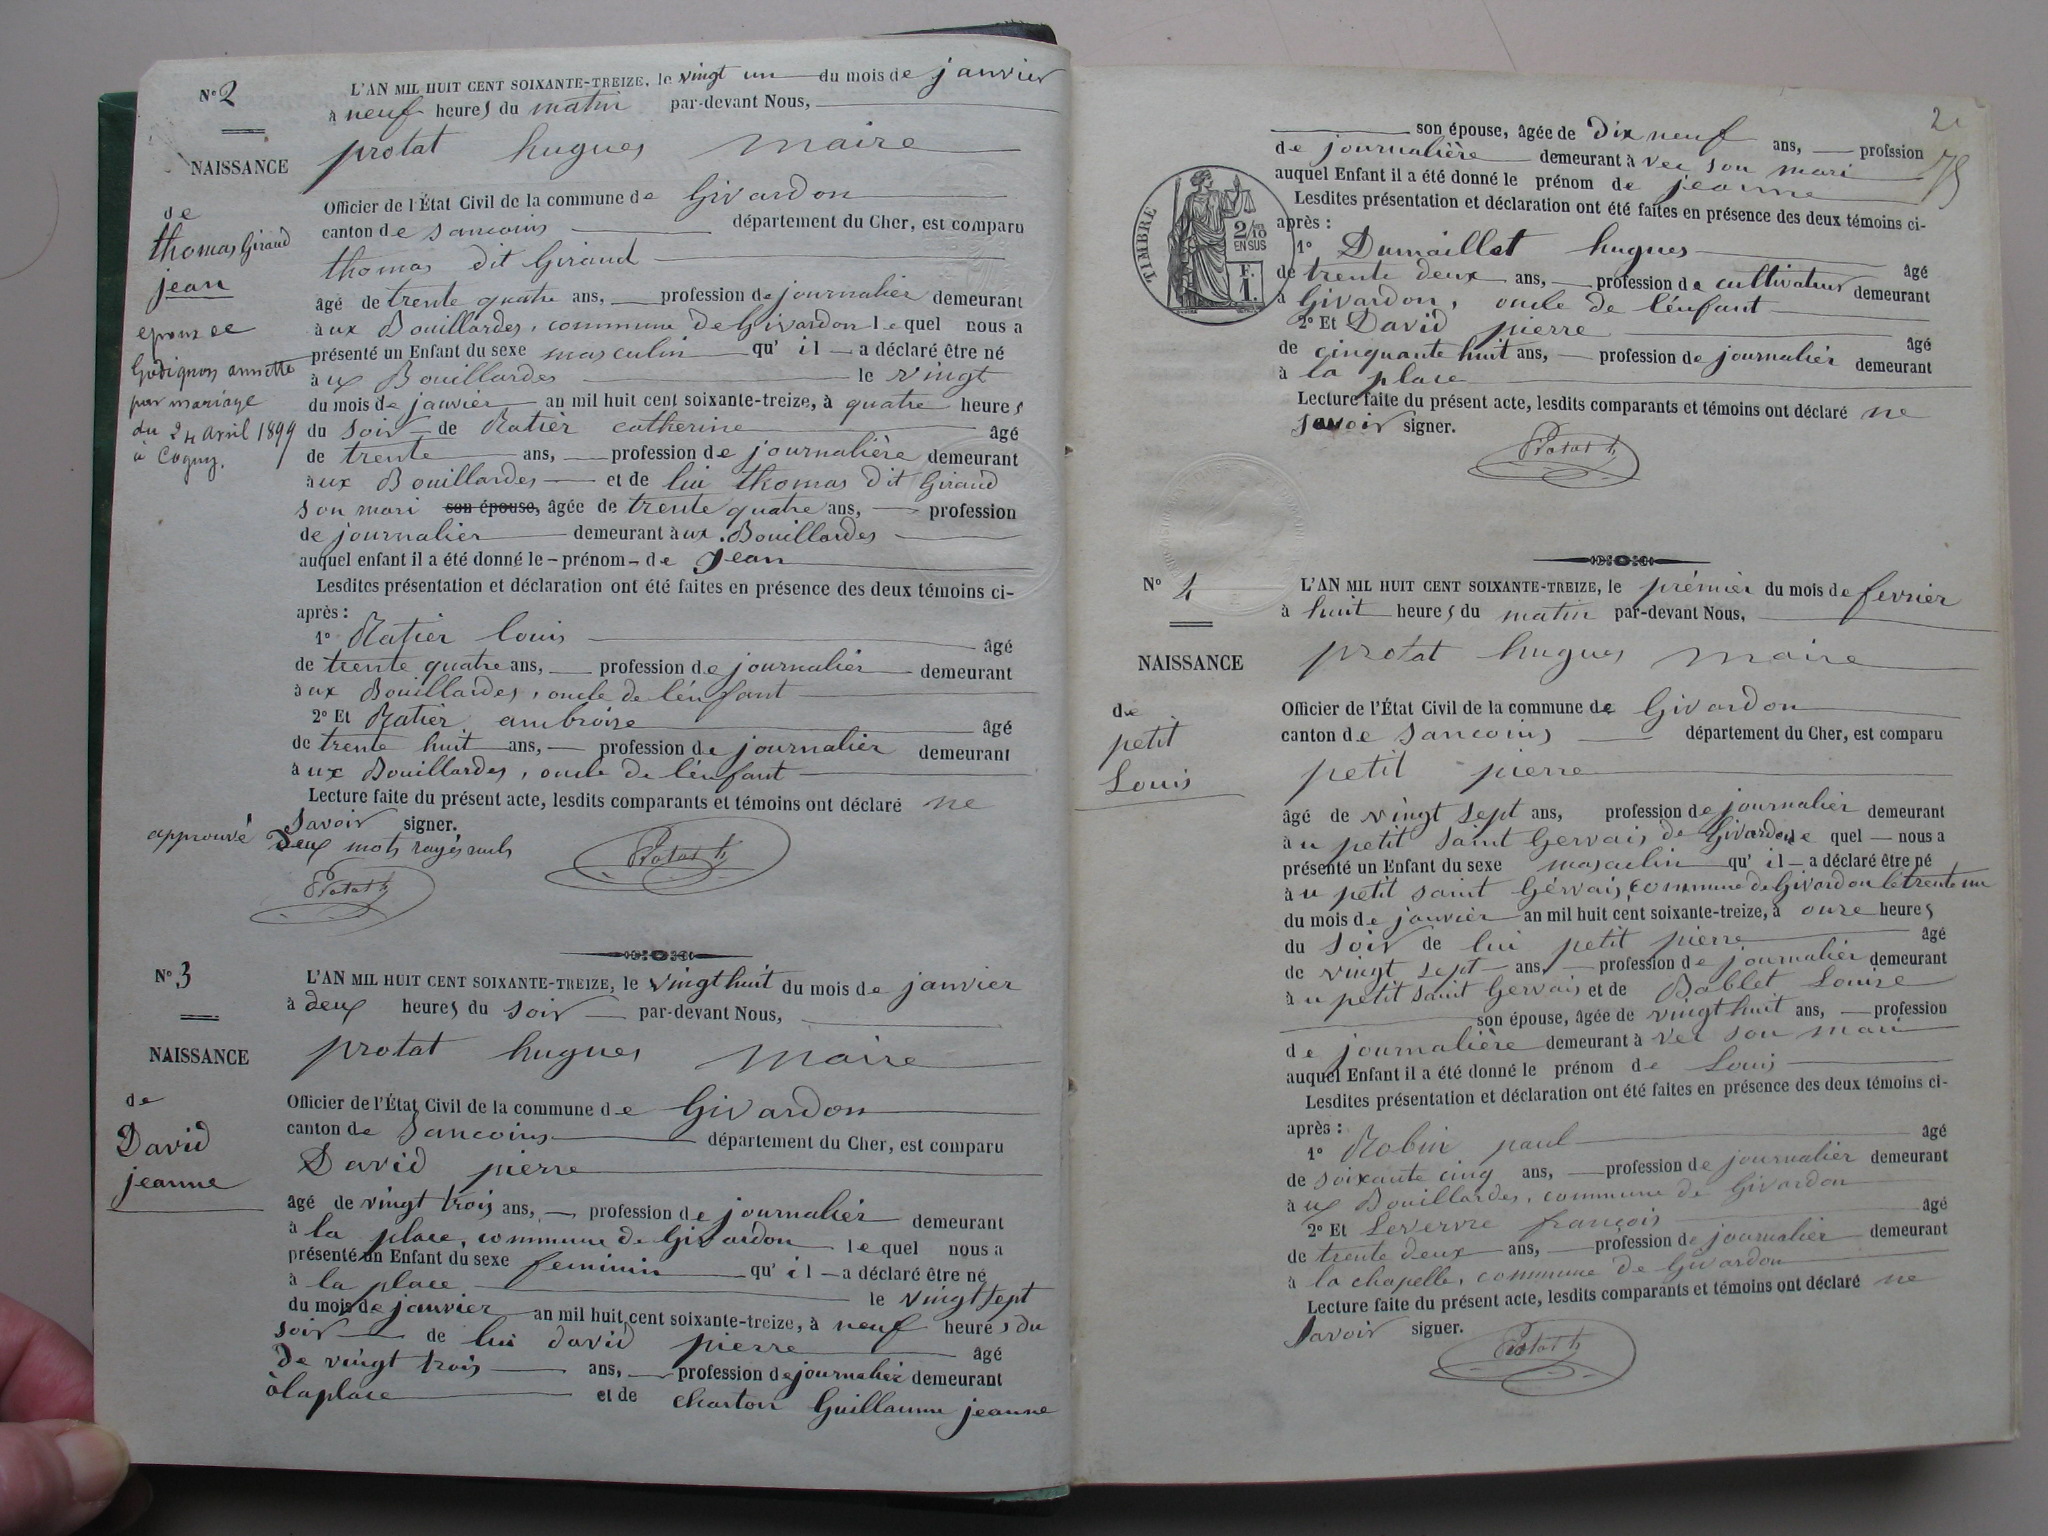 N° 2
L'AN MIL HUIT CENT SOIXANTE-TREIZE, le vingt un du mois de janvier
à neuf heures du matin par-devant Nous,
protat hugues maire
NAISSANCE
de
thomas Giraud
jean
epoux de
Godignon annette
par mariage
du 24 avril 1899
à Cogny.
Officier de l'État Civil de la commune de Givardon
canton de Sancoins département du Cher, est comparu
thomas dit Giraud
âgé de trente quatre ans, profession de journalier demeurant
aux Bouillardes, commune de Givardon lequel nous a
présenté un Enfant du sexe masculin qu'il a déclaré être né
aux Bouillardes le vingt
du mois de janvier an mil huit cent soixante-treize, à quatre heures
du soir de Ratier catherine âgé
de trente ans, profession de journalière demeurant
aux Bouillardes et de lui thomas dit Giraud
son mari son épouse, âgée de trente quatre ans, profession
de journalier demeurant aux Bouillardes
auquel enfant il a été donné le prénom de Jean
Lesdites présentation et déclaration ont été faites en présence des deux témoins ci-
après :
1° Ratier louis âgé
de trente quatre ans, profession de journalier demeurant
aux Bouillardes, oncle de l'énfant
2° Et Ratier ambroise âgé
de trente huit ans, profession de journalier demeurant
aux Bouillardes, oncle de l'énfant
Lecture faite du présent acte, lesdits comparants et témoins ont déclaré ne
savoir signer.
approuvé Deux mots rayés nuls
Protat h
Protat h
N° 3
L'AN MIL HUIT CENT SOIXANTE-TREIZE, le vingt huit du mois de janvier
à deux heures du soir par-devant Nous,
protat hugues maire
NAISSANCE
de
David
jeanne
Officier de l'État Civil de la commune de Givardon
canton de Sancoins département du Cher, est comparu
David pierre
âgé de vingt trois ans, profession de journalier demeurant
à la place, commune de Givardon lequel nous a
présenté un Enfant du sexe feminin qu'il a déclaré être né
à la place le vingt sept
du mois de janvier an mil huit cent soixante-treize, à neuf heures du
soir de lui david pierre âgé
de vingt trois ans, profession de journalier demeurant
à la place et de charton Guillaume jeanne
2
75
son épouse, âgée de Dix neuf ans, profssion
de journalière demeurant à vec son mari
auquel Enfant il a été donné le prénom de jeanne
Lesdites présentation et déclaration ont été faites en présence des deux témoins ci-
après :
TIMBRE
2/10 EN SUS
F.
1.
1° Dumaillet hugues âgé
de trente deux ans, profession de cultivateur demeurant
à Givardon, oncle de l'énfant
2° Et David pierre âgé
de cinquante huit ans, profession de journalier demeurant
à la place
Lecture faite du présent acte, lesdits comparants et témoins ont déclaré ne
savoir signer.
Protat h
N° 4
L'AN MIL HUIT CENT SOIXANTE-TREIZE, le prémier du mois de fevrier
à huit heures du matin par-devant Nous,
protat hugues maire
NAISSANCE
de
petit
Louis
Officier de l'État Civil de la commune de Givardon
canton de Sancoins département du Cher, est comparu
petit pierre
âgé de vingt sept ans, profession de journalier demeurant
au petit saint Gervais de Givardon le quel nous a
présenté un Enfant du sexe masculin qu'il a déclaré être né
au petit saint Gérvais, commune de Givardon le trente un
du mois de janvier an mil huit cent soixante-treize, à onze heures
du soir de lui petit pierre âgé
de vingt sept ans, profession de journalier demeurant
au petit saint Gervais et de Bablet Louise
son épouse, âgée de vingt huit ans, profession
de journalière demeurant à vec son mari
auquel Enfant il a été donné le prénom de Louis
Lesdites présentation et déclaration ont été faites en présence des deux témoins ci-
après :
1° Robin paul âgé
de soixante cinq ans, profession de journalier demeurant
aux Bouillardes, commune de Givardon
2° Et Levervre françois âgé
de trente deux ans, profession de journalier demeurant
à la chapelle, commune de Givardon
Lecture faite du présent acte, lesdits comparants et témoins ont déclaré ne
savoir signer.
Protat h